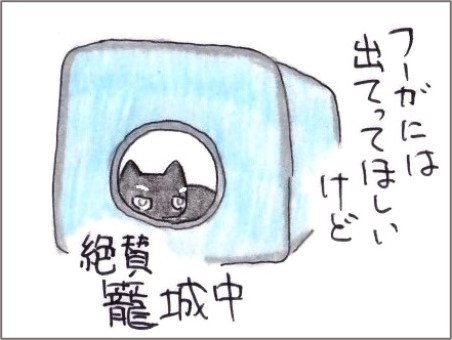 フーガには
出てってほしい
けど
絶賛
籠城中